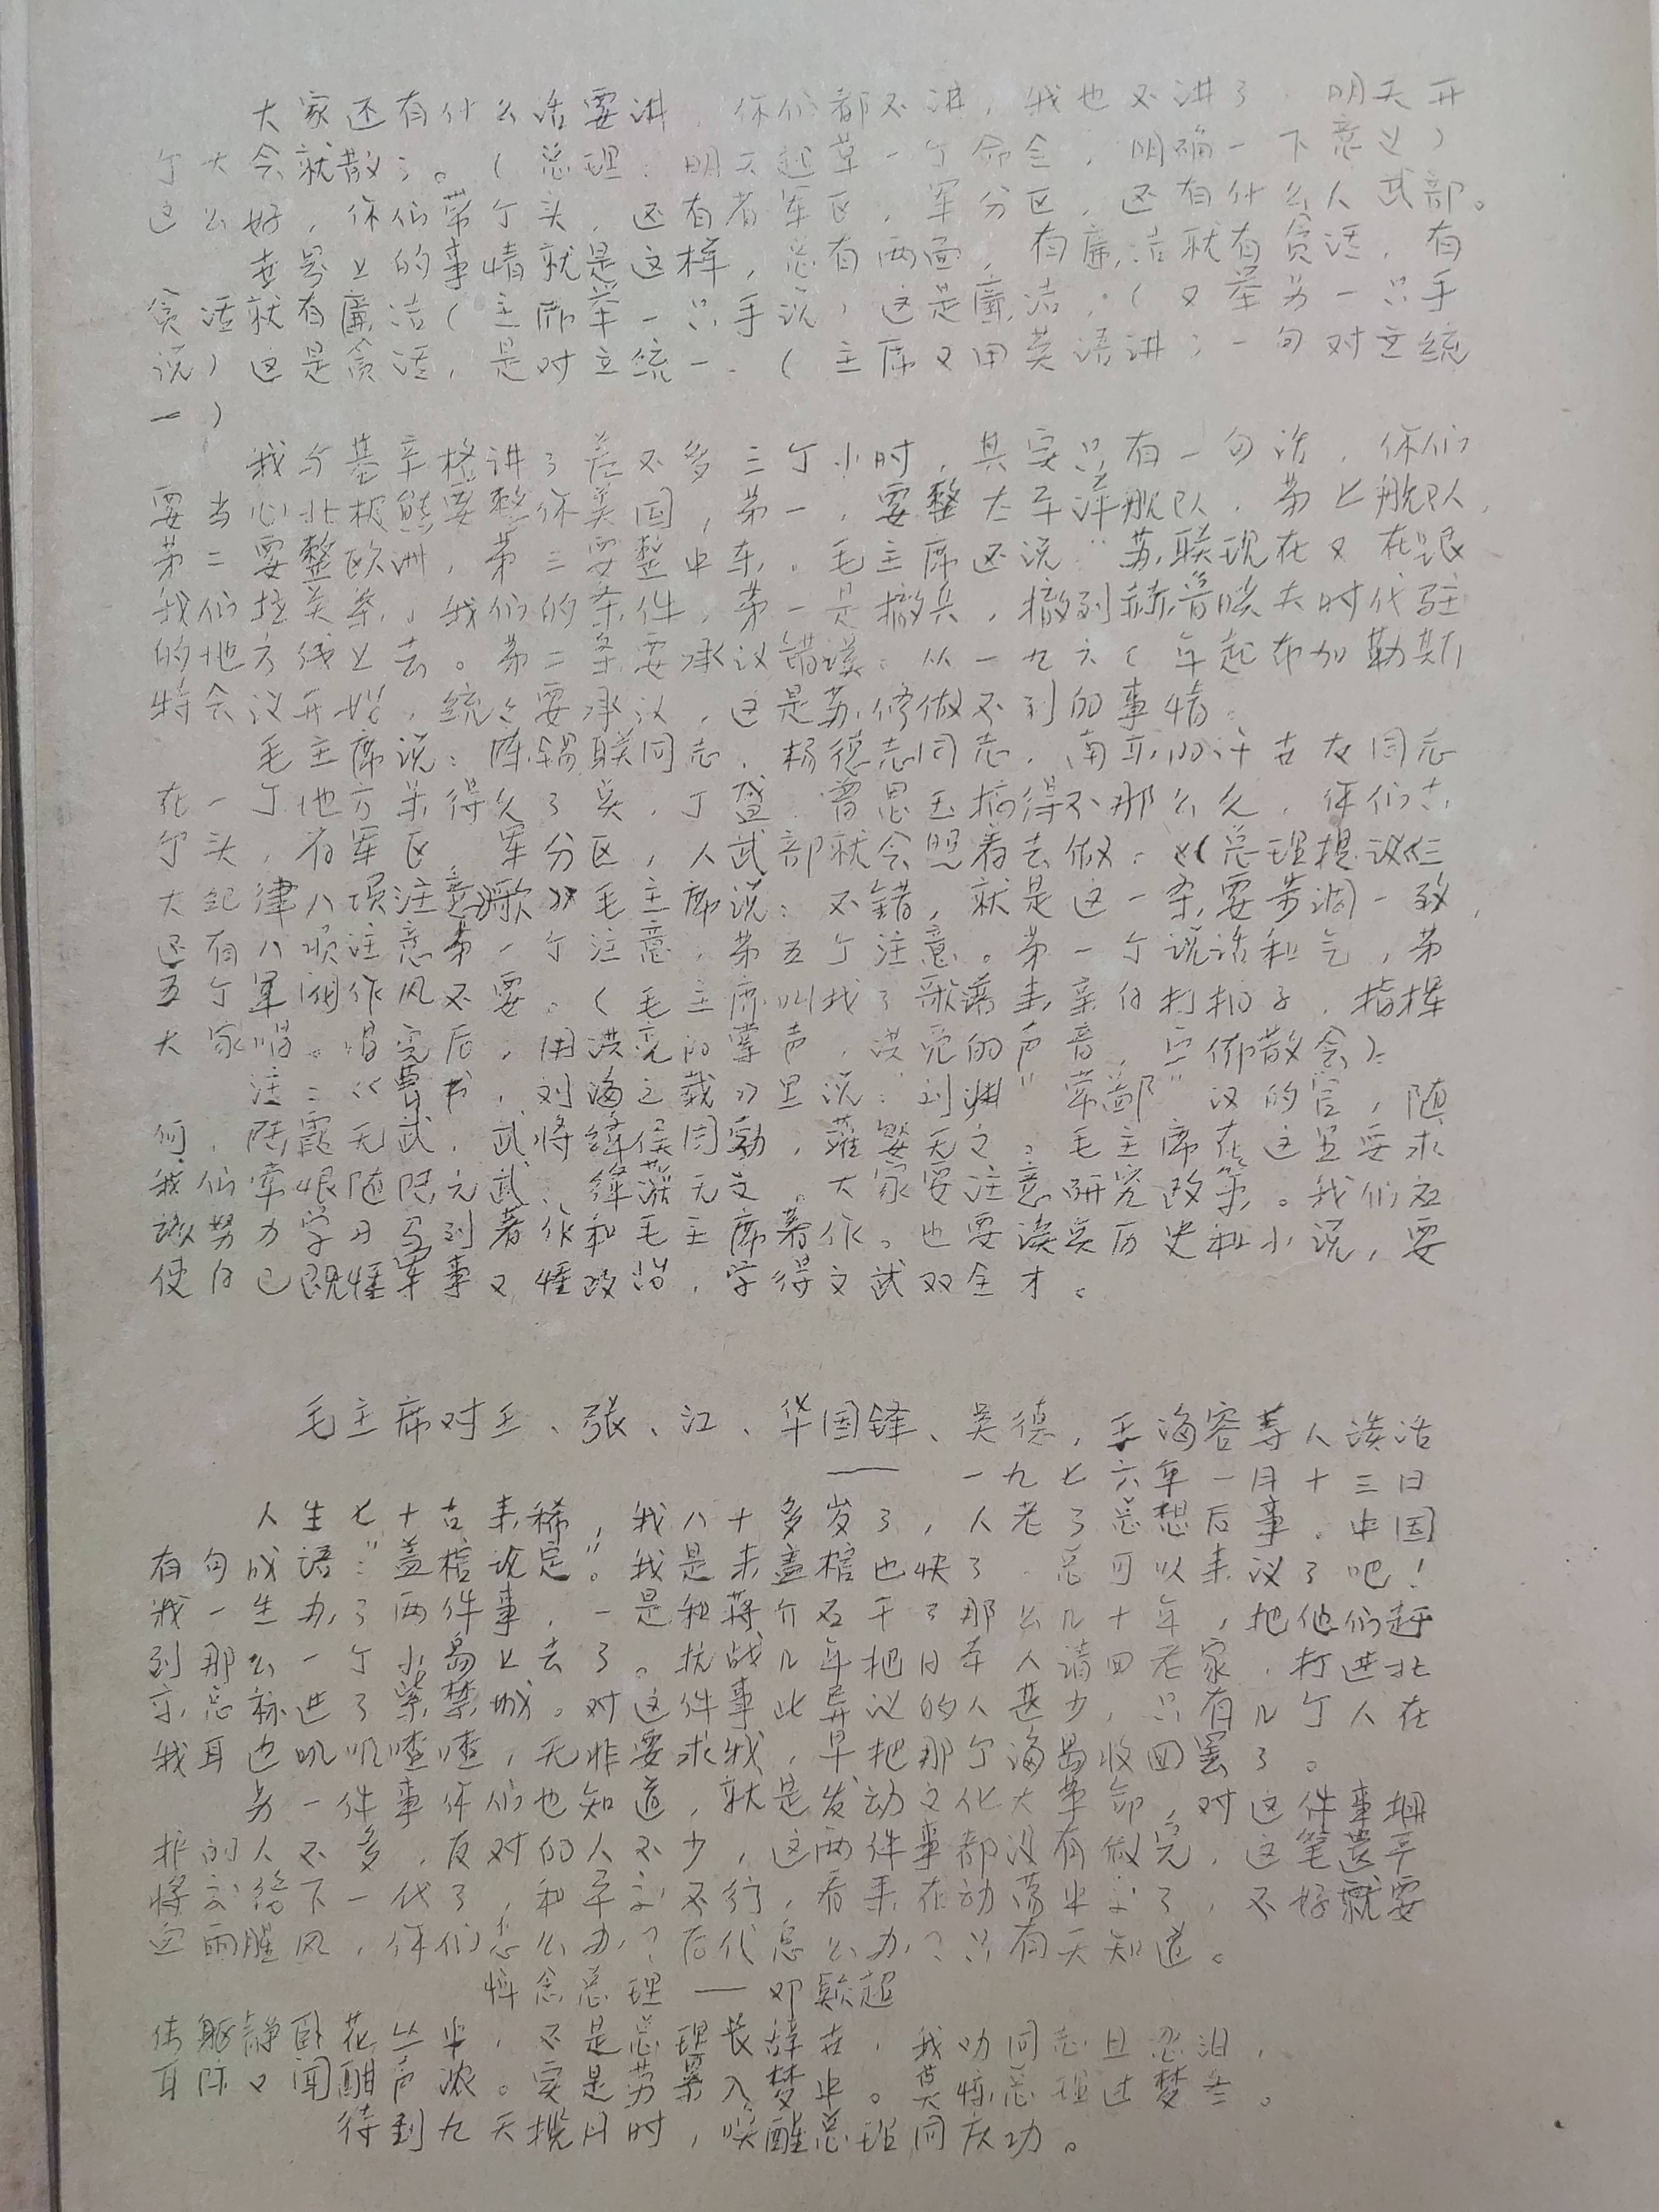 大家还有什么话要讲，你们都不讲，我也不讲了，明天开
个大会就散了。（总理：明天起草一个命令，明确一下意义）
这么好，你们带个头，还有省军区，军分区，还有什么人武部。
世界上的事情就是这样，总有两面，有廉洁就有贪污，有
贪污就有廉洁（主席举一只手说，这是廉洁，（又举另一只手
说）这是贪污，是对立统一。（主席又用英语讲了一句对立统
一）
我与基辛格讲了差不多三个小时，其实只有一句话，你们
要当心北极熊要整你美国，第一，要整太平洋舰队，第七舰队，
第二要整欧洲，第三要整中东。毛主席还说：苏联现在又在跟
我们拉关系，我们的条件，第一是撤兵，撤到赫鲁晓夫时代驻
的地方线上去。第二条要承认错误。从一九六〇年起布加勒斯
特会议开始，统统要承认，这是苏修做不到的事情。
毛主席说：陈锡联同志，杨德志同志，南京的许世友同志
在一个地方呆得久了矣，丁盛，曾思玉搞得不那么久，你们带
个头，省军区，军分区，人武部就会照着去做。《（总理提议《三
大纪律八项注意》歌》毛主席说：不错，就是这一条要步调一致，
还有八项注意第一个注意，第五个注意。第一个说话和气，第
五个军阀作风不要。（毛主席叫找了歌谱来亲自打拍子，指挥
大家唱。唱完后，用洪亮的掌声，洪亮的声音，宣佈散会）。
注：《晋书，刘海之载》里说：刘渊"常鄙"汉的官，随
何，陆贾无武，武将绛侯周勃，灌婴无文。毛主席在这里要求
我们牵恨随陆无武、绛灌无文。大家要注意研究政策。我们应
该努力学习马列著作和毛主席著作。也要读矣历史和小说，要
使自己既懂军事又懂政治，学得文武双全才。
毛主席对王、张、江、华国锋、吴德，王海容等人谈话
—— 一九七六年一月十三日
人生七十古来稀，我八十多岁了，人老了总想后事。中国
有句成语："盖棺论定"。我是未盖棺也快了，总可以来议了吧！
我一生办了两件事，一是和蒋介石干了那么几十年，把他们赶
到那么一个小岛上去了。抗战几年把日本人请回老家，打进北
京总算进了紫禁城。对这件事此异议的人甚少，只有几个人在
我耳边叽叽喳喳，无非要求我，早把那个海岛收回罢了。
另一件事你们也知道，就是发动文化大革命，对这件事拥
护的人不多，反对的人不少，这两件事都没有做完，这笔遗产
将交给下一代了，和平交不行，看来在动荡中交了，不好就要
血雨腥风，你们怎么办？后代怎么办？只有天知道。
悼念总理——邓颖超
体躯静卧花丛中，不是总理长辞在，我劝同志且忍泪，
耳际又闻酣声浓。实是劳累入梦中。莫惊总理进梦冬。
待到九天揽月时，唤醒总理同庆功。